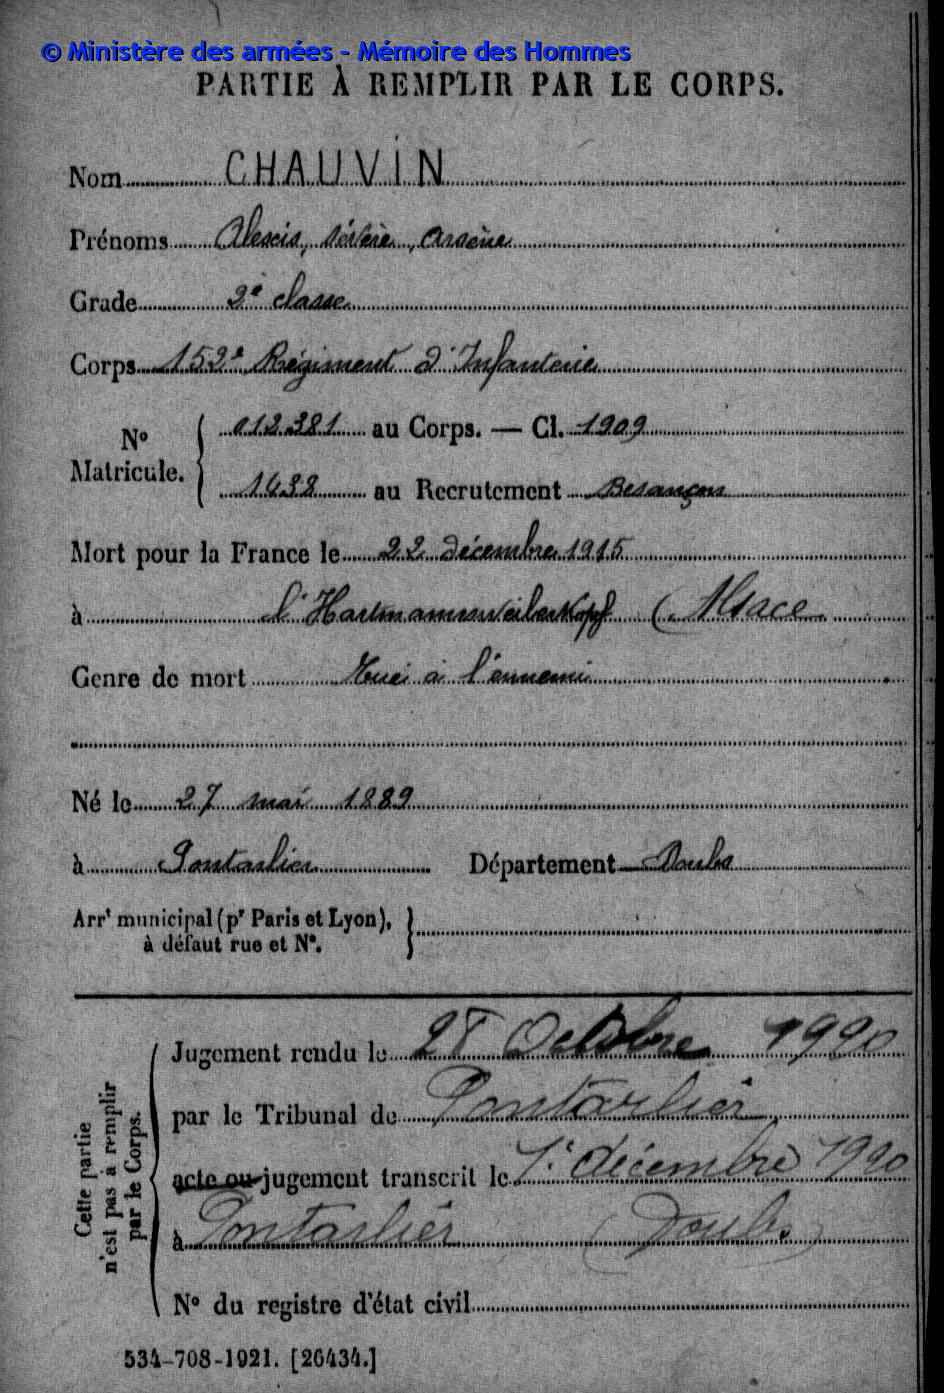 © Ministère des armées - Mémoire des Hommes
PARTIE À REMPLIR PAR LE CORPS.
Nom CHAUVIN
Prénoms Alexis, Sévère, Arsène
Grade 2e classe
Corps 152e Régiment d'Infanterie
No Matricule. { 012381 au Corps. — Cl. 1909
1438 au Recrutement Besançon
Mort pour la France le 22 décembre 1915
à l'Hartmannsweilerkopf (Alsace
Genre de mort Tué à l'ennemi
Né le 27 mai 1889
à Pontarlier Département Doubs
Arrt municipal (pr Paris et Lyon), }
à défaut rue et No.
Cette partie n'est pas à remplir par le Corps.
Jugement rendu le 28 Octobre 1920
par le Tribunal de Pontarlier
acte ou jugement transcrit le 1e décembre 1920
à Pontarlier (Doubs)
No du registre d'état civil
534-708-1921. [26434.]